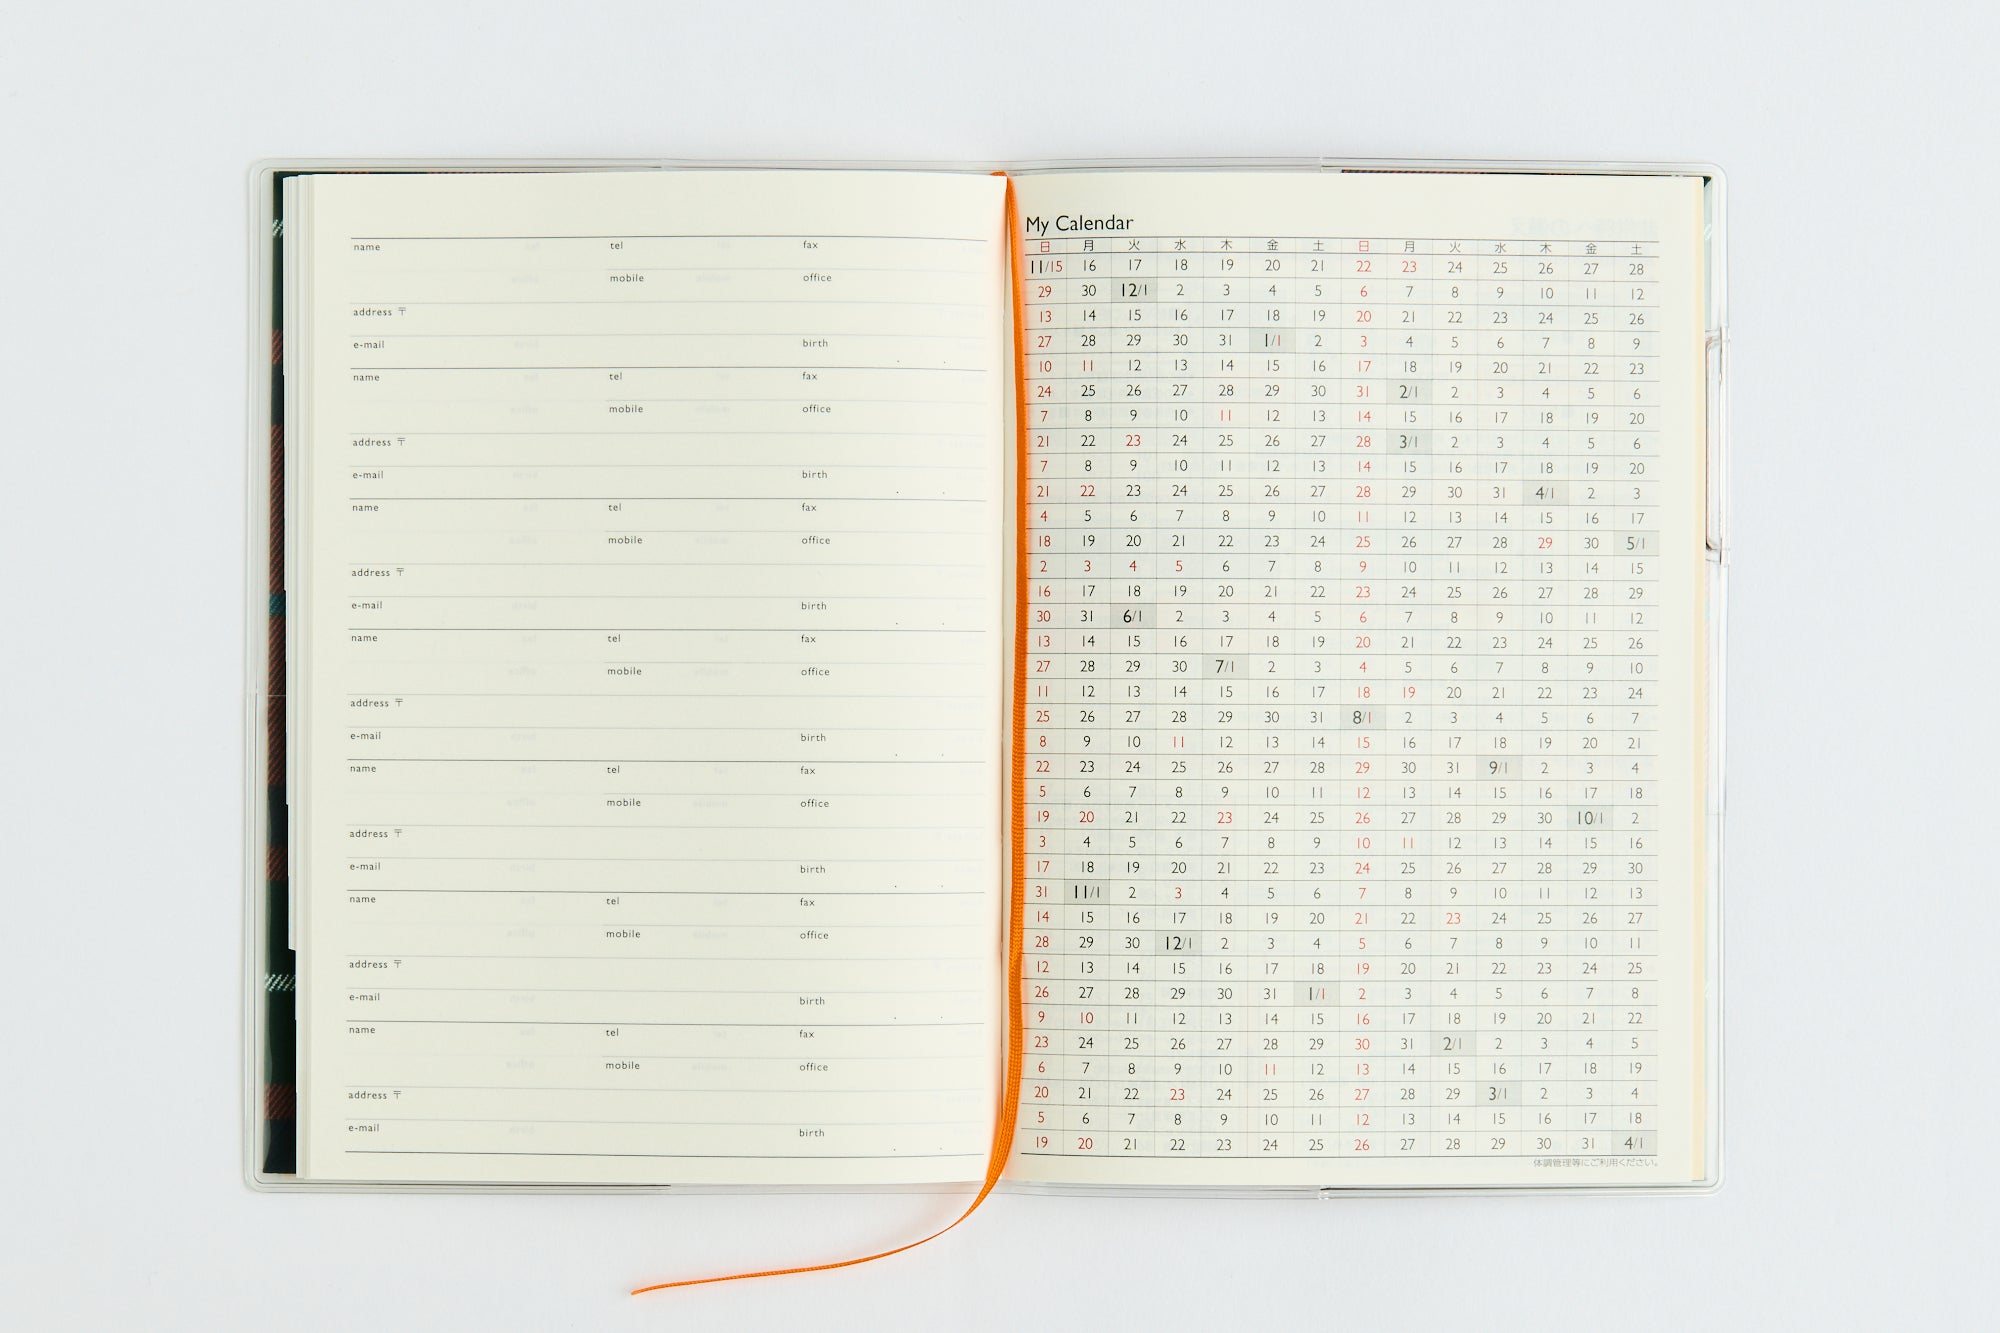 name tel fax
mobile office
address 〒
e-mail birth . .
name tel fax
mobile office
address 〒
e-mail birth . .
name tel fax
mobile office
address 〒
e-mail birth . .
name tel fax
mobile office
address 〒
e-mail birth . .
name tel fax
mobile office
address 〒
e-mail birth . .
name tel fax
mobile office
address 〒
e-mail birth . .
name tel fax
mobile office
address 〒
e-mail birth . .
My Calendar
日 月 火 水 木 金 土 日 月 火 水 木 金 土
11/15 16 17 18 19 20 21 22 23 24 25 26 27 28
29 30 12/1 2 3 4 5 6 7 8 9 10 11 12
13 14 15 16 17 18 19 20 21 22 23 24 25 26
27 28 29 30 31 1/1 2 3 4 5 6 7 8 9
10 11 12 13 14 15 16 17 18 19 20 21 22 23
24 25 26 27 28 29 30 31 2/1 2 3 4 5 6
7 8 9 10 11 12 13 14 15 16 17 18 19 20
21 22 23 24 25 26 27 28 3/1 2 3 4 5 6
7 8 9 10 11 12 13 14 15 16 17 18 19 20
21 22 23 24 25 26 27 28 29 30 31 4/1 2 3
4 5 6 7 8 9 10 11 12 13 14 15 16 17
18 19 20 21 22 23 24 25 26 27 28 29 30 5/1
2 3 4 5 6 7 8 9 10 11 12 13 14 15
16 17 18 19 20 21 22 23 24 25 26 27 28 29
30 31 6/1 2 3 4 5 6 7 8 9 10 11 12
13 14 15 16 17 18 19 20 21 22 23 24 25 26
27 28 29 30 7/1 2 3 4 5 6 7 8 9 10
11 12 13 14 15 16 17 18 19 20 21 22 23 24
25 26 27 28 29 30 31 8/1 2 3 4 5 6 7
8 9 10 11 12 13 14 15 16 17 18 19 20 21
22 23 24 25 26 27 28 29 30 31 9/1 2 3 4
5 6 7 8 9 10 11 12 13 14 15 16 17 18
19 20 21 22 23 24 25 26 27 28 29 30 10/1 2
3 4 5 6 7 8 9 10 11 12 13 14 15 16
17 18 19 20 21 22 23 24 25 26 27 28 29 30
31 11/1 2 3 4 5 6 7 8 9 10 11 12 13
14 15 16 17 18 19 20 21 22 23 24 25 26 27
28 29 30 12/1 2 3 4 5 6 7 8 9 10 11
12 13 14 15 16 17 18 19 20 21 22 23 24 25
26 27 28 29 30 31 1/1 2 3 4 5 6 7 8
9 10 11 12 13 14 15 16 17 18 19 20 21 22
23 24 25 26 27 28 29 30 31 2/1 2 3 4 5
6 7 8 9 10 11 12 13 14 15 16 17 18 19
20 21 22 23 24 25 26 27 28 29 3/1 2 3 4
5 6 7 8 9 10 11 12 13 14 15 16 17 18
19 20 21 22 23 24 25 26 27 28 29 30 31 4/1
体調管理等にご利用ください。